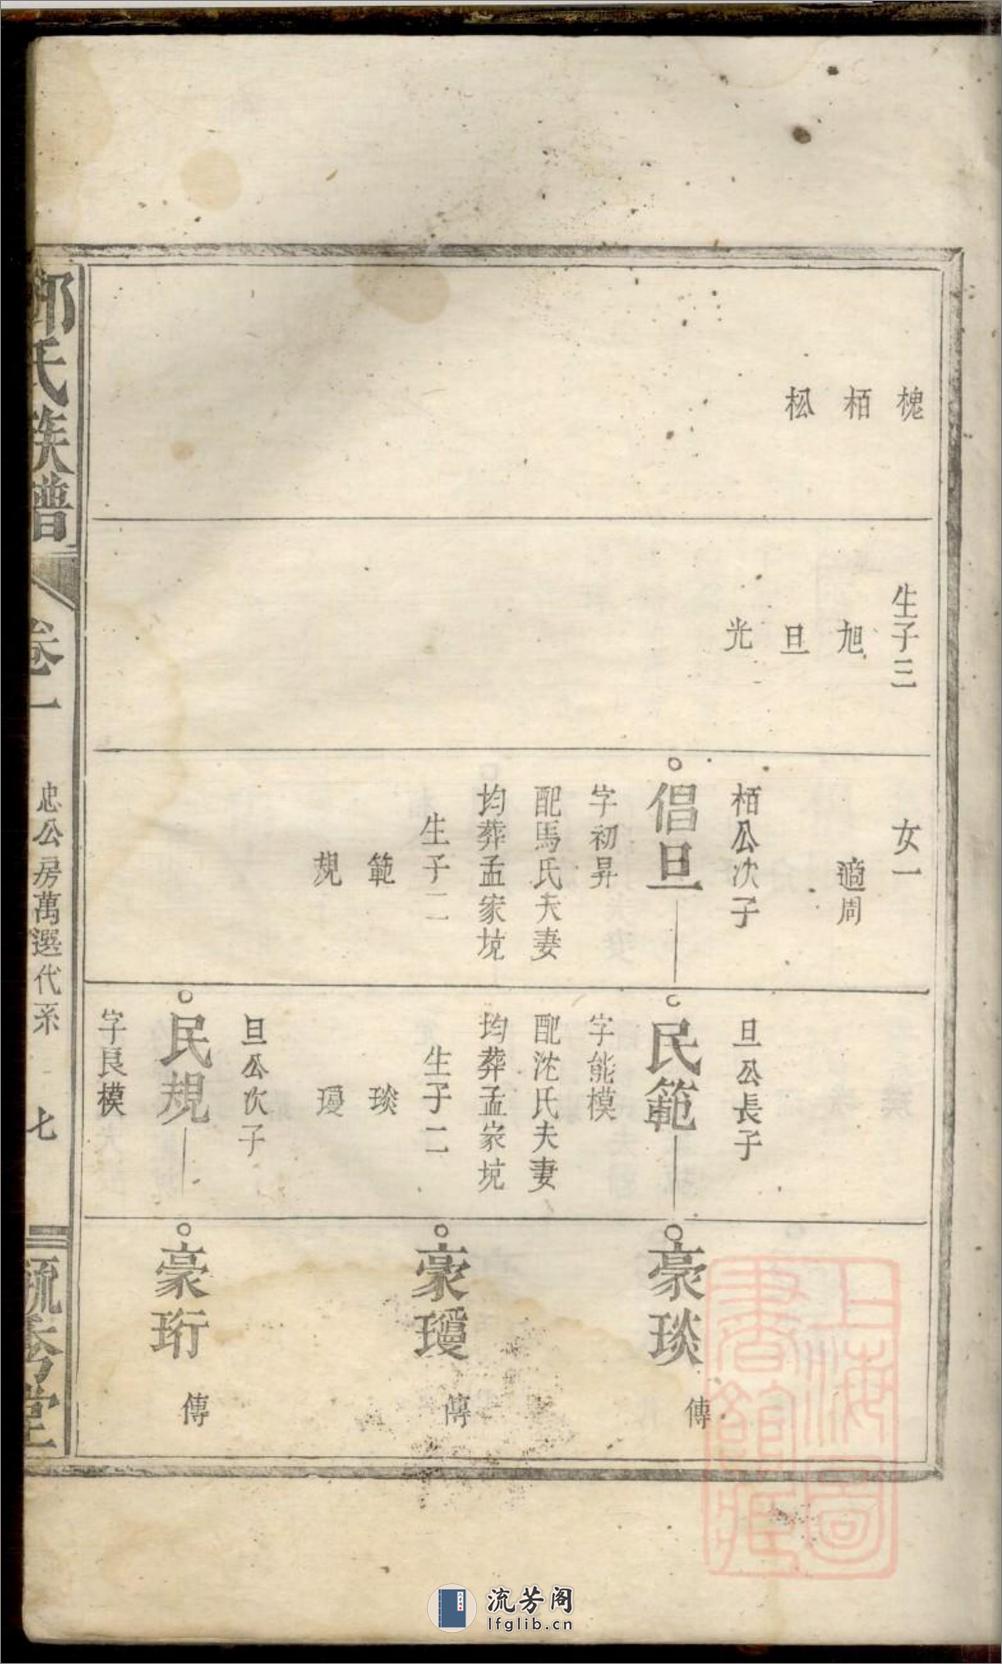 槐
栢
松
生子三
旭
旦
光
女一
適周
栢公次子
倡旦
字初昇
配馬氏夫妻
均葬孟家坑
生子二
範
規
旦公長子
民範
字能模
配沈氏夫妻
均葬孟家坑
生子二
琰
璦
旦公次子
民規
字良模
豪琰
傳
豪璦
傳
豪珩
傳
氏族譜
卷一
忠公房萬選代系
七
秀堂
上海圖
書館藏
流芳阁
lfglib.cn